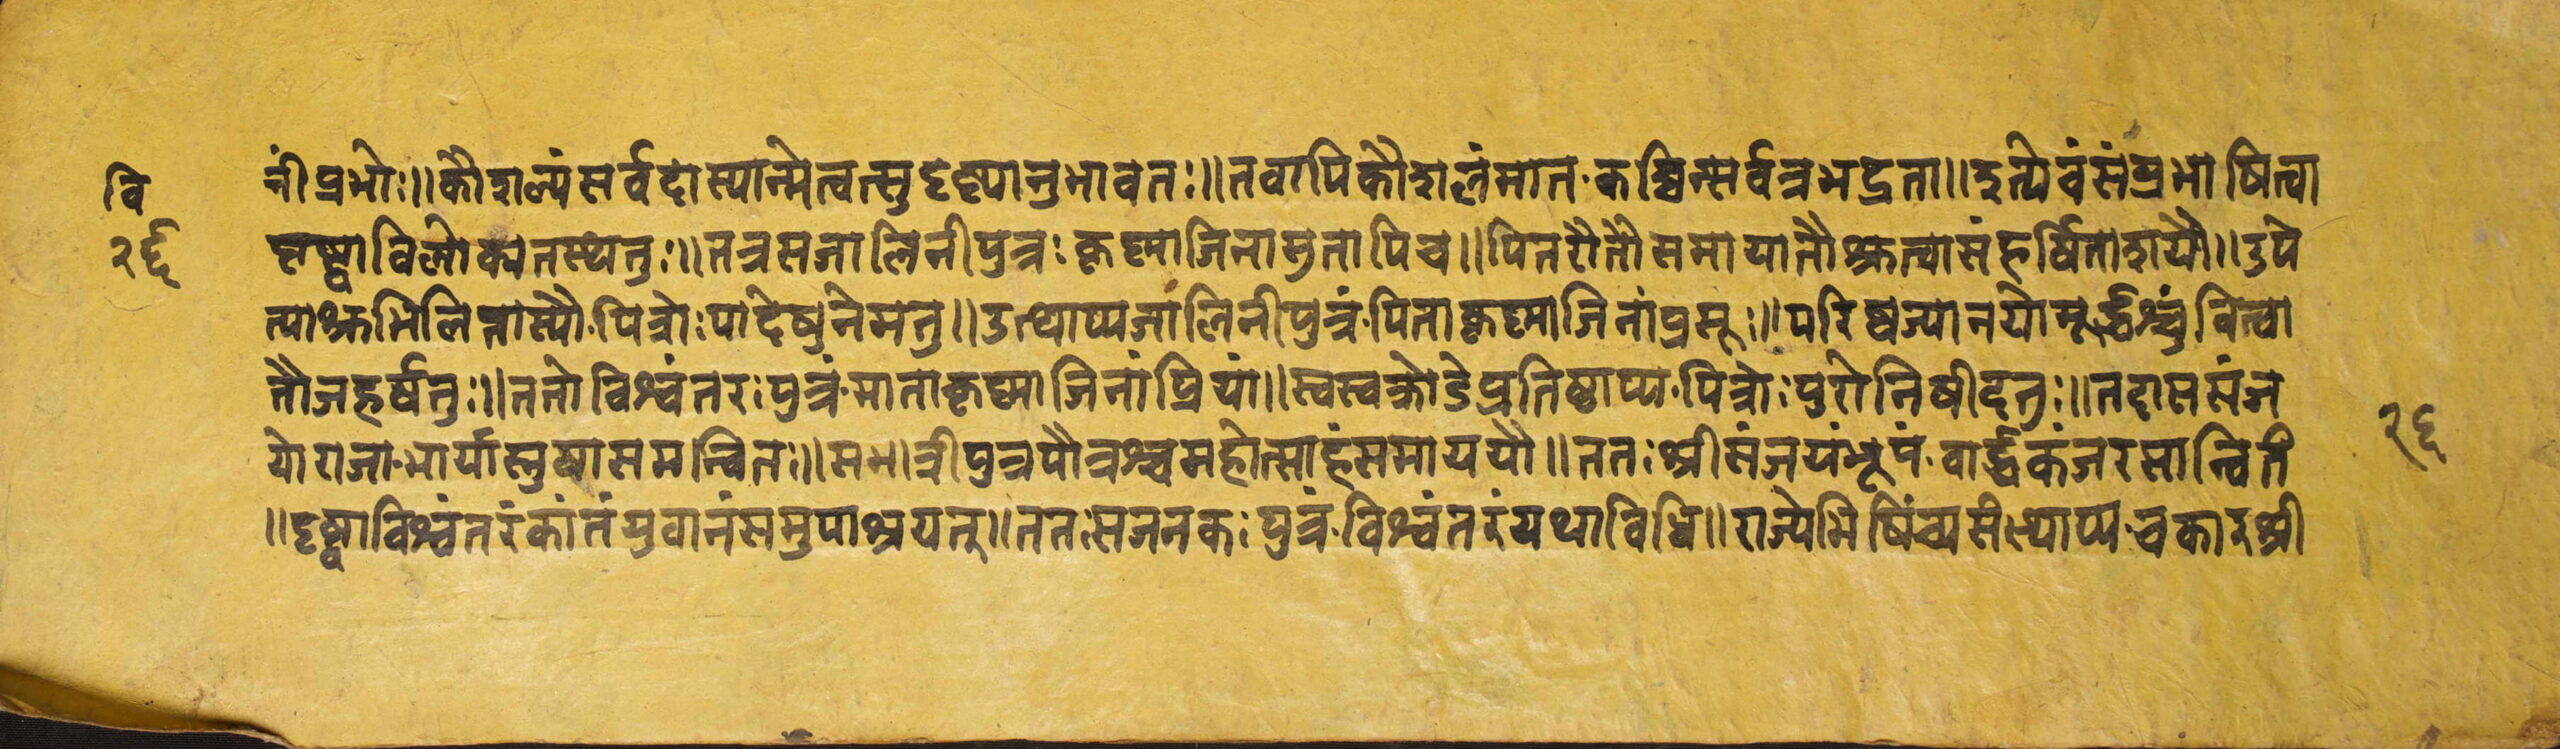 वि
२६
नीं प्रभोः॥कौशल्यं सर्वदास्यान्मेत्वत्सुदृष्ट्यानुभावतः॥तवापिकौशलंमात·कच्चित्सर्वत्रभद्रता॥इत्येवंसंप्रभाषित्वा
पृष्ट्वाविलोक्यतस्थतुः॥तत्रसजालिनीपुत्रःकृष्माजिनामुतापिच॥पितरौतौसमायातौश्रुत्वासंहर्षिताशयौ॥उपे
त्याश्रुभिलिन्नास्यौ·पित्रोःपादेषुनेमतु॥उत्थाप्यजालिनीपुत्रं·पिताकृष्माजिनांप्रसूः॥परिष्वज्यानयोमूर्द्धश्चुंवित्वा
तौजहर्षतुः॥ततोविश्वंतरःपुत्रं·माताकृष्माजिनांप्रियां॥स्वस्वक्रोडेप्रतिष्ठाप्य·पित्रोःपुरोनिषीदतुः॥तदाससंज
योराजा·भार्यास्नुषासमन्वितः॥समात्रीपुत्रपौत्रश्चमहोत्साहंसमाययौ॥ततःश्रीसंजयंभूपं·वार्द्धकंजरसान्वितं
२६
॥दृष्ट्वाविश्वंतरंकांतंयुवानंसमुपाश्रयत्॥ततःसजनकःपुत्रं·विश्वंतरंयथाविधि॥राज्येभिषिंच्यसंस्थाप्य·चकारश्री